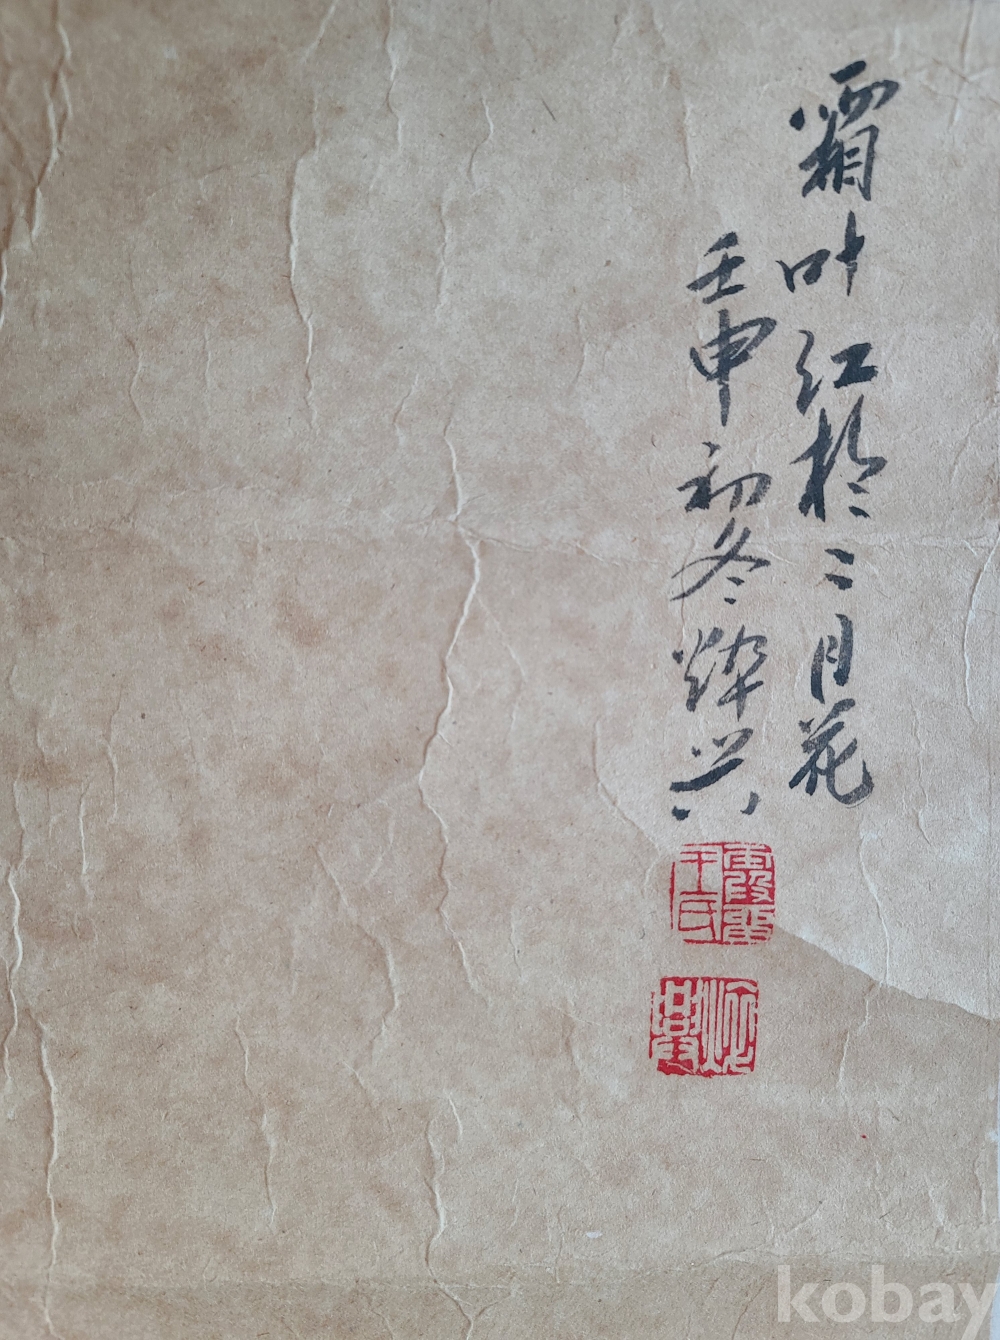 霜叶红於二月花
壬申初冬烨兴
kobay